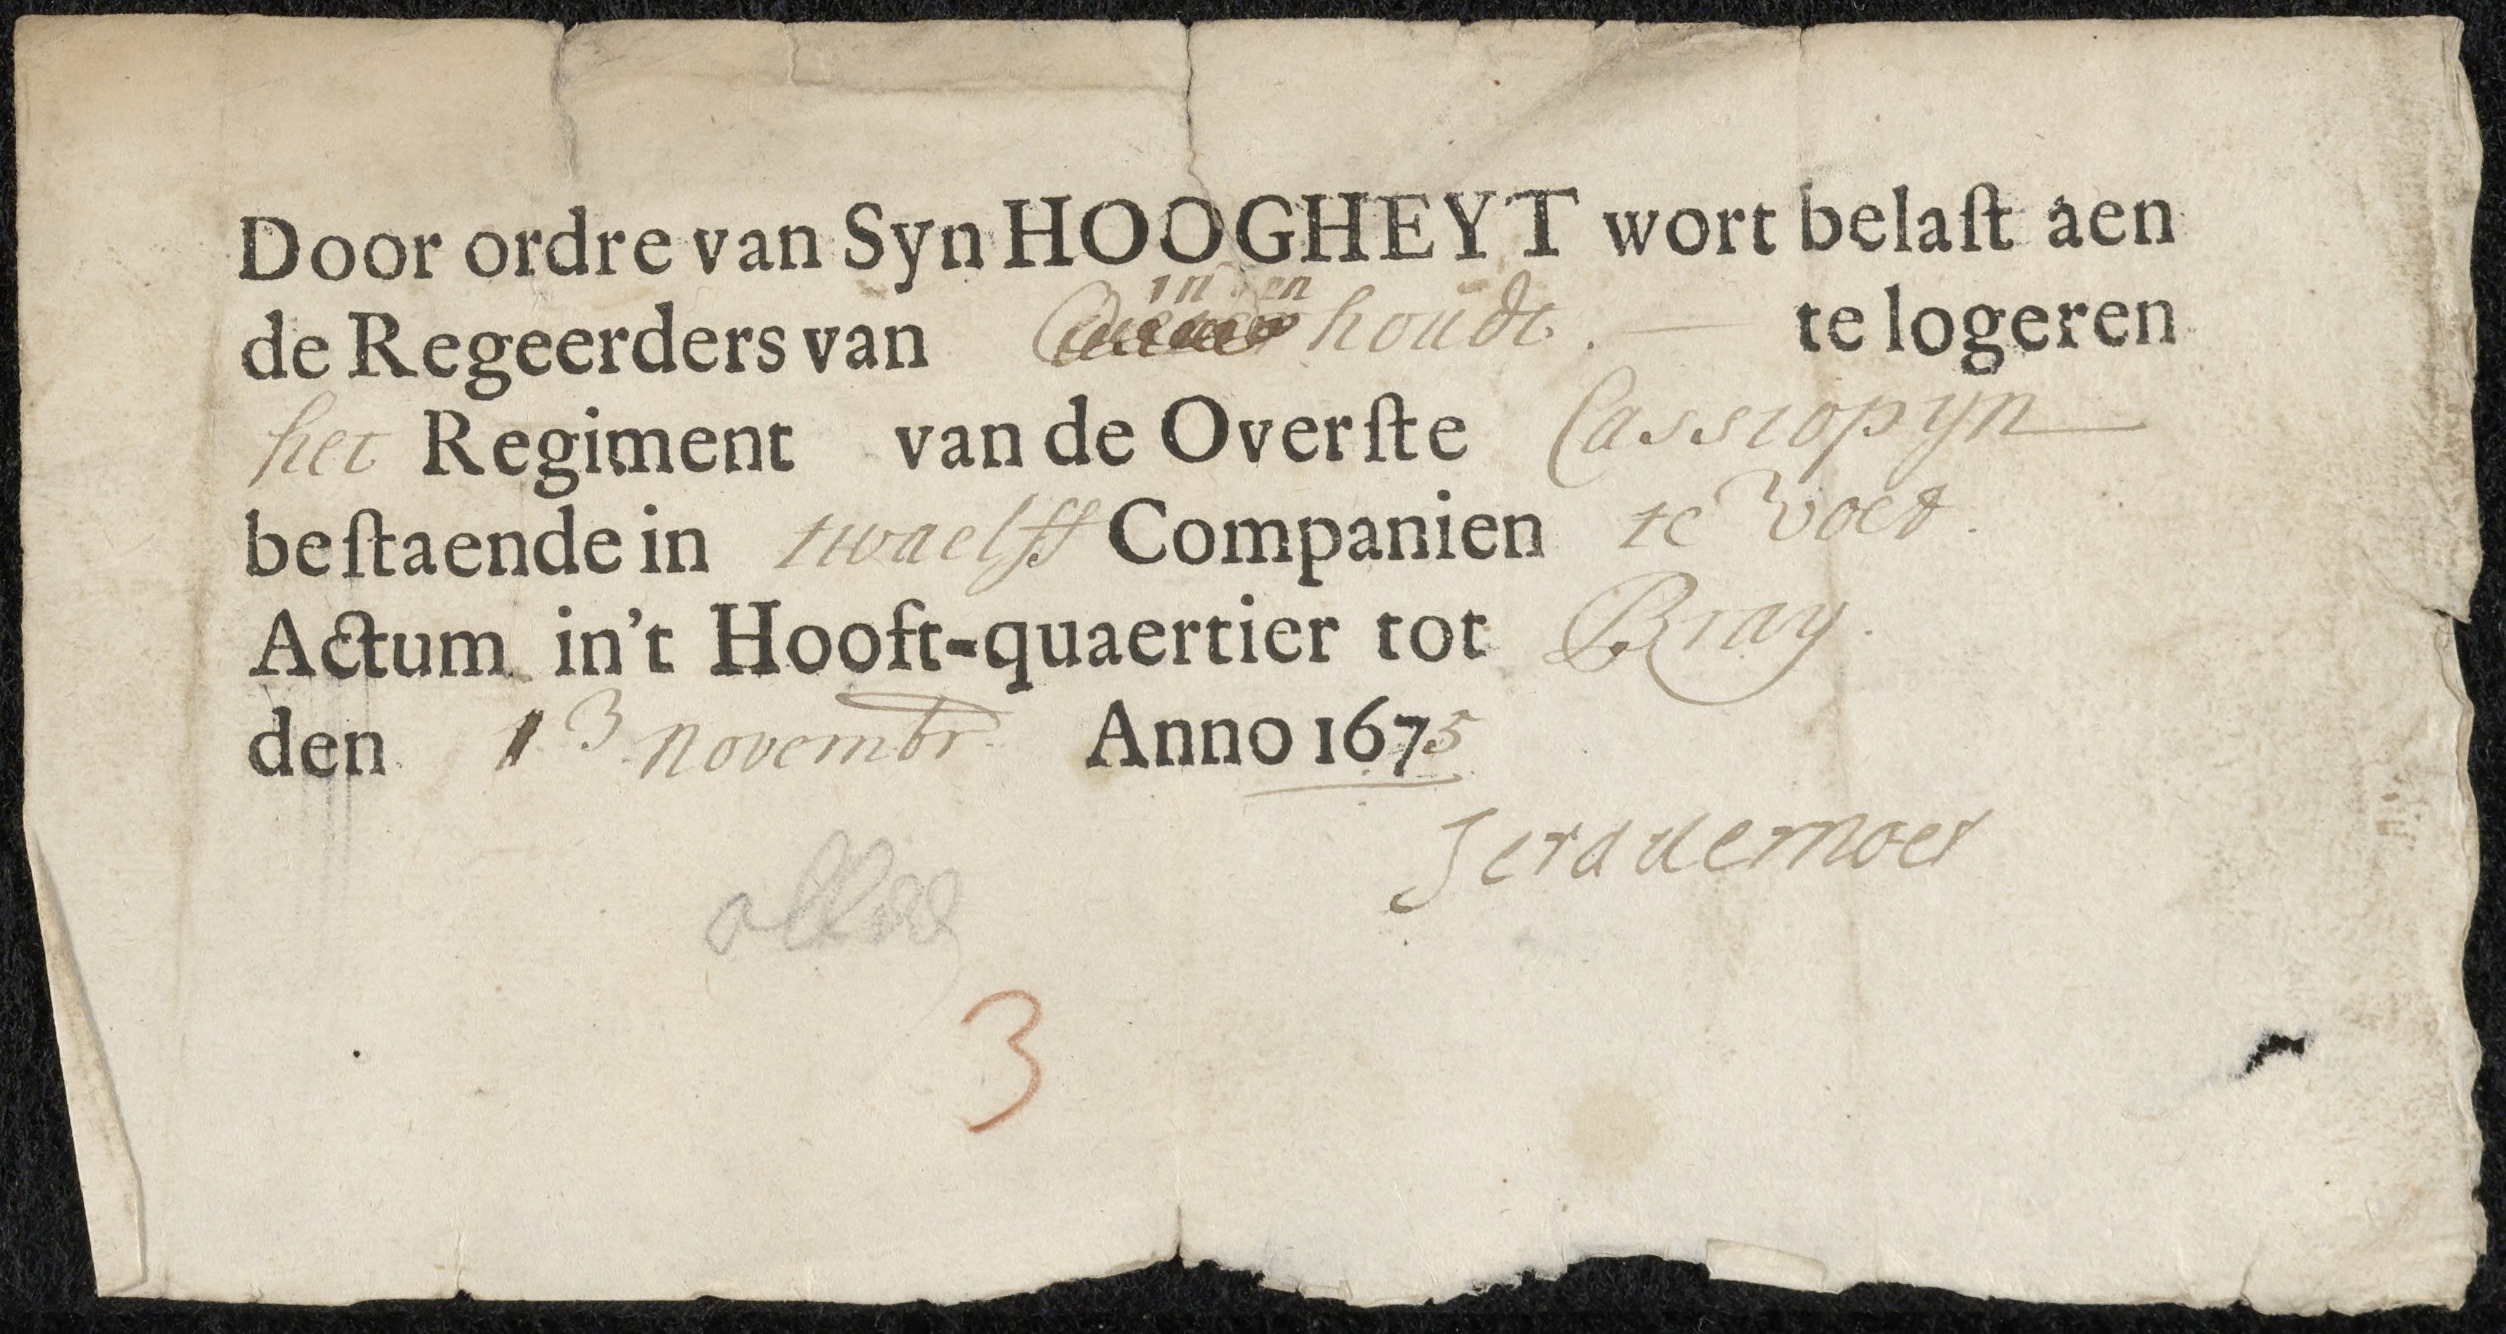 Door ordre van Syn HOOGHEYT wort belaſt aen
de Regeerders van houdt. te logeren
het Regiment van de Overſte Cassiopyn
beſtaende in twaelff Companien te voet.
Actum in't Hooft-quaertier tot Bray.
den 13 novembr. Anno 1675
3